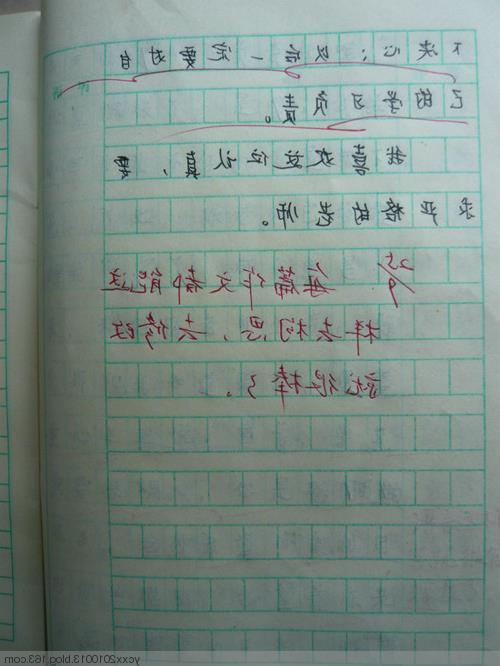 下决心：以后一定要对自
己的学习负责。
我喜欢这位认真，要
求严格的老师。
每篇作文都能这
样去构思，去修改
就很棒了。
ycxx20100013.blog.163.com